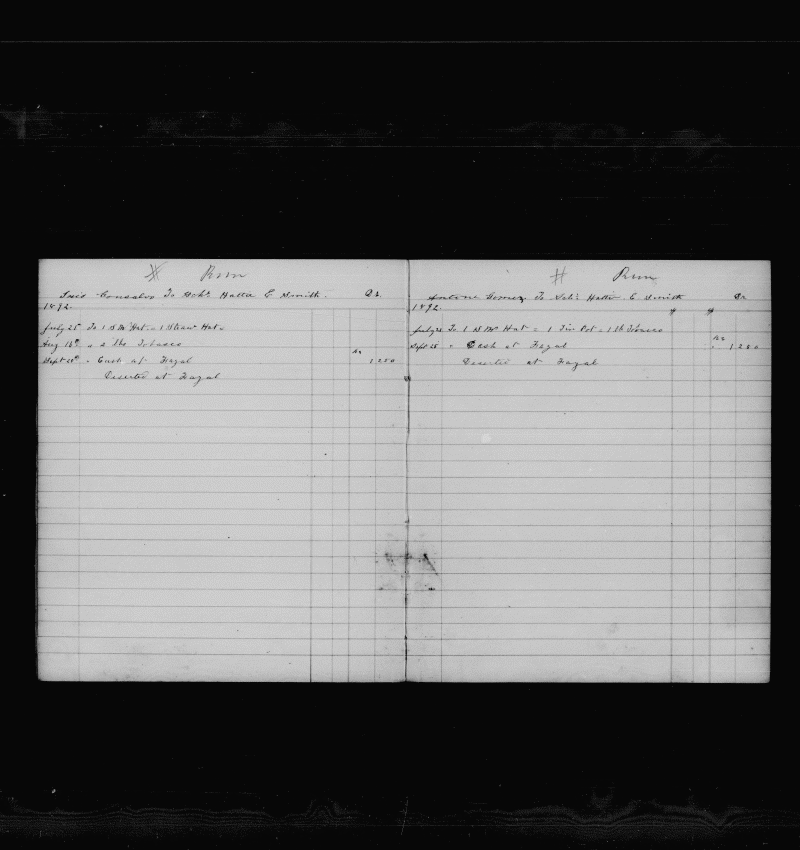 # Run
Gonsalvo To Schr Hattie E Smith. Dr.
1892.
July 25 To 1 S W Hat = 1 Straw Hat =
Aug 18th " 2 lbs Tobacco
Sept 28th " Cash at Fayal Rs 1 250
Deserted at Fayal
# Run
Antone Gomez To Schr Hattie E Smith Dr
1892.
July 25 To 1 S W Hat = 1 Tin Pot = 1 lb Tobacco
Sept 28 " Cash at Fayal Rs " 1 250
Deserted at Fayal